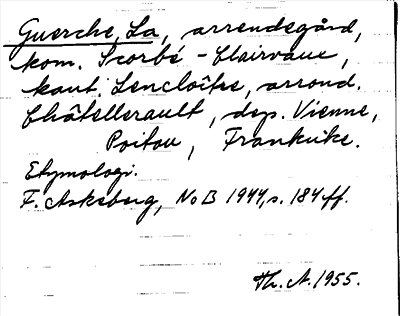 Guerche, La, arrendegård,
kom. Scorbé-Clairvaux,
kant. Lencloître, arrond.
Châtellerault, dep. Vienne,
Poitou, Frankrike.
Etymologi.
F. Askeberg, NoB 1944, s. 184 ff.
Th. A. 1955.